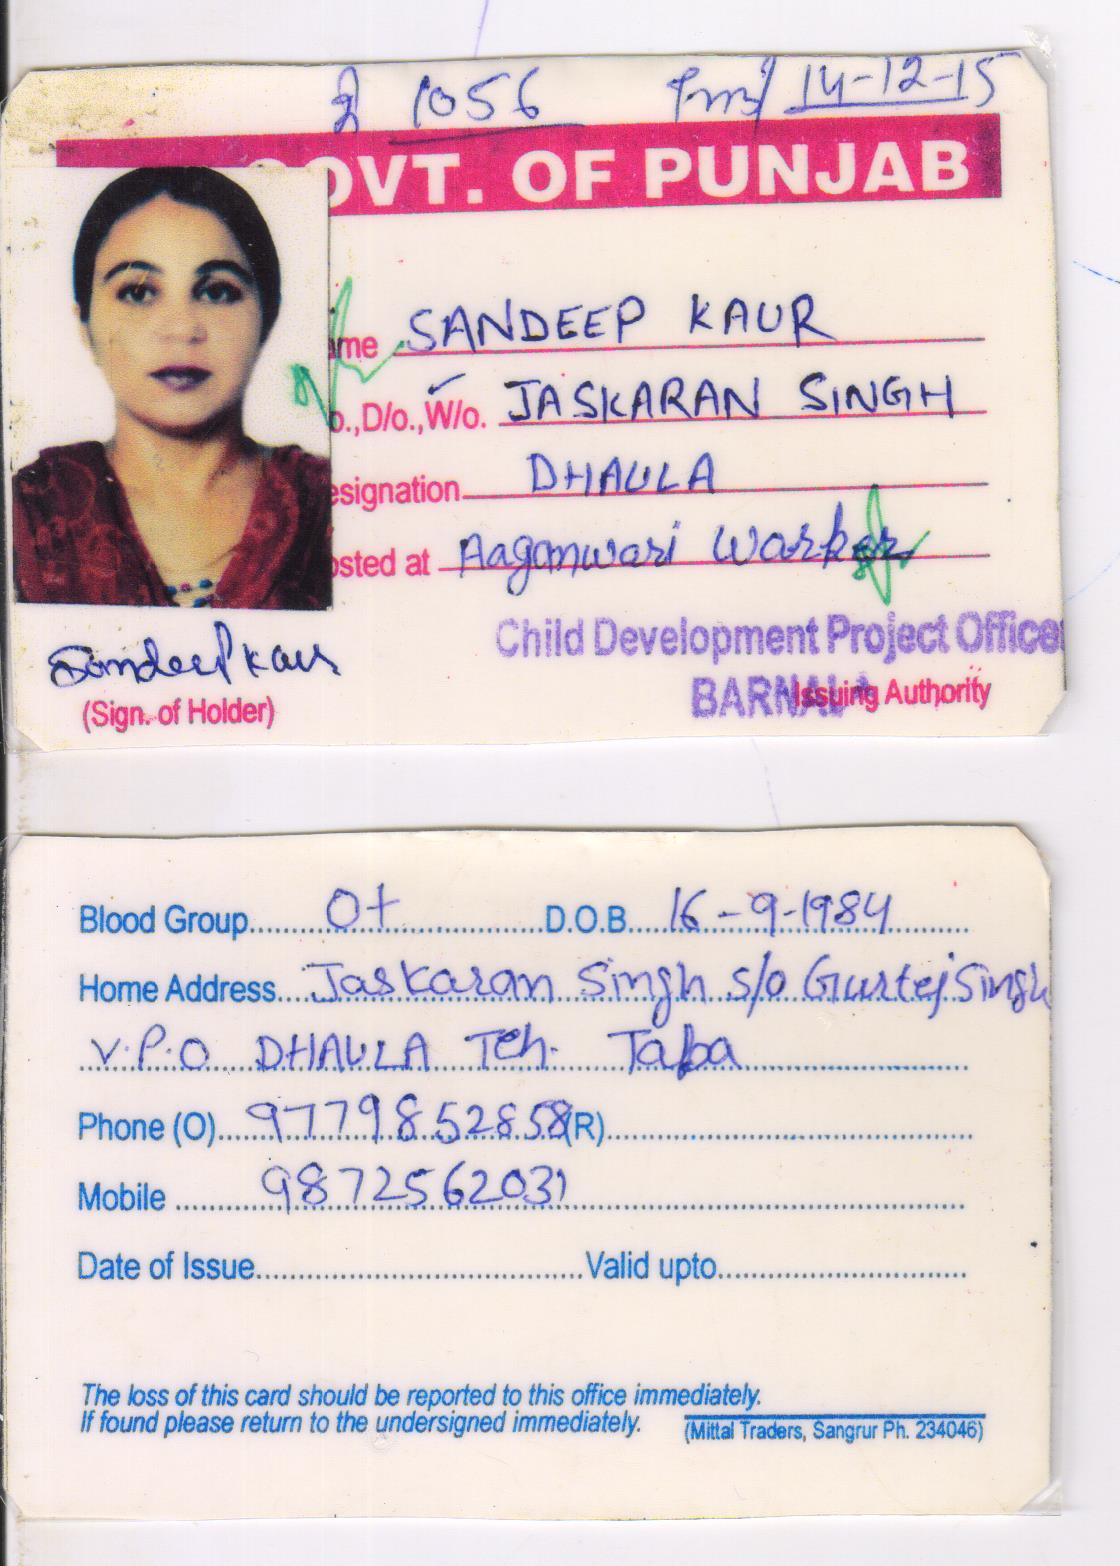 1056 14-12-15
GOVT. OF PUNJAB
Name SANDEEP KAUR
o.,D/o.,W/o. ✓ JASKARAN SINGH
Designation DHAULA
Posted at Aaganwari Warker
Child Development Project Office
BARNALA
Issuing Authority
Sandeep kaur
(Sign. of Holder)
Blood Group O+ D.O.B. 16-9-1984
Home Address Jaskaran Singh s/o Gurtej Singh
V.P.O DHAULA Teh. Tapa
Phone (O) 9779852858 (R)
Mobile 9872562031
Date of Issue Valid upto
The loss of this card should be reported to this office immediately.
If found please return to the undersigned immediately.
(Mittal Traders, Sangrur Ph. 234046)